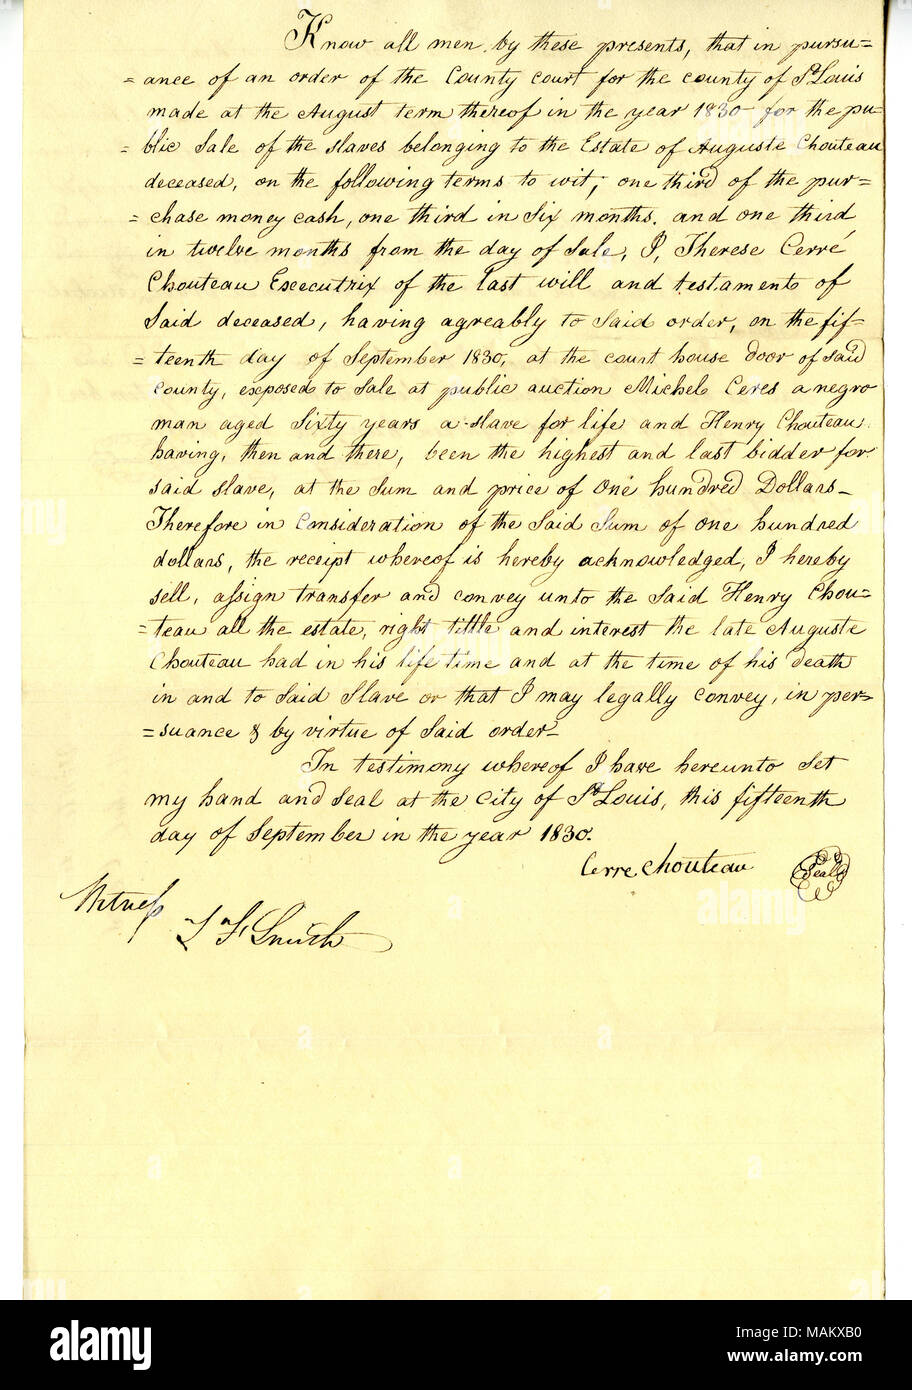 Know all men by these presents, that in pursu=
=ance of an order of the County court for the county of St Louis
made at the August term thereof in the year 1830 for the pu=
=blic Sale of the slaves belonging to the Estate of Auguste Chouteau
deceased, on the following terms to wit; one third of the pur=
=chase money cash, one third in Six months. and one third
in twelve months from the day of Sale, I, Therese Cerré
Chouteau Excecutrix of the last will and testament of
Said deceased, having agreably to Said order, on the fif=
=teenth day of September 1830, at the court house door of said
County, exposed to Sale at public auction Michel Ceres a negro
man aged Sixty years a slave for life and Henry Chouteau
having, then and there, been the highest and last bidder for
said slave, at the Sum and price of One hundred Dollars_
Therefore in Consideration of the Said Sum of one hundred
dollars, the receipt whereof is hereby acknowledged, I hereby
sell, assign transfer and convey unto the Said Henry Chou=
=teau all the estate, right tittle and interest the late Auguste
Chouteau had in his life time and at the time of his death
in and to Said Slave or that I may legally convey, in per=
=suance & by virtue of Said order_
In testimony whereof I have hereunto Set
my hand and Seal at the City of St Louis, this fifteenth
day of September in the year 1830.
Cerre Chouteau Seal
Witness
L F Smith
alamy
Image ID: MAKXB0
www.alamy.com